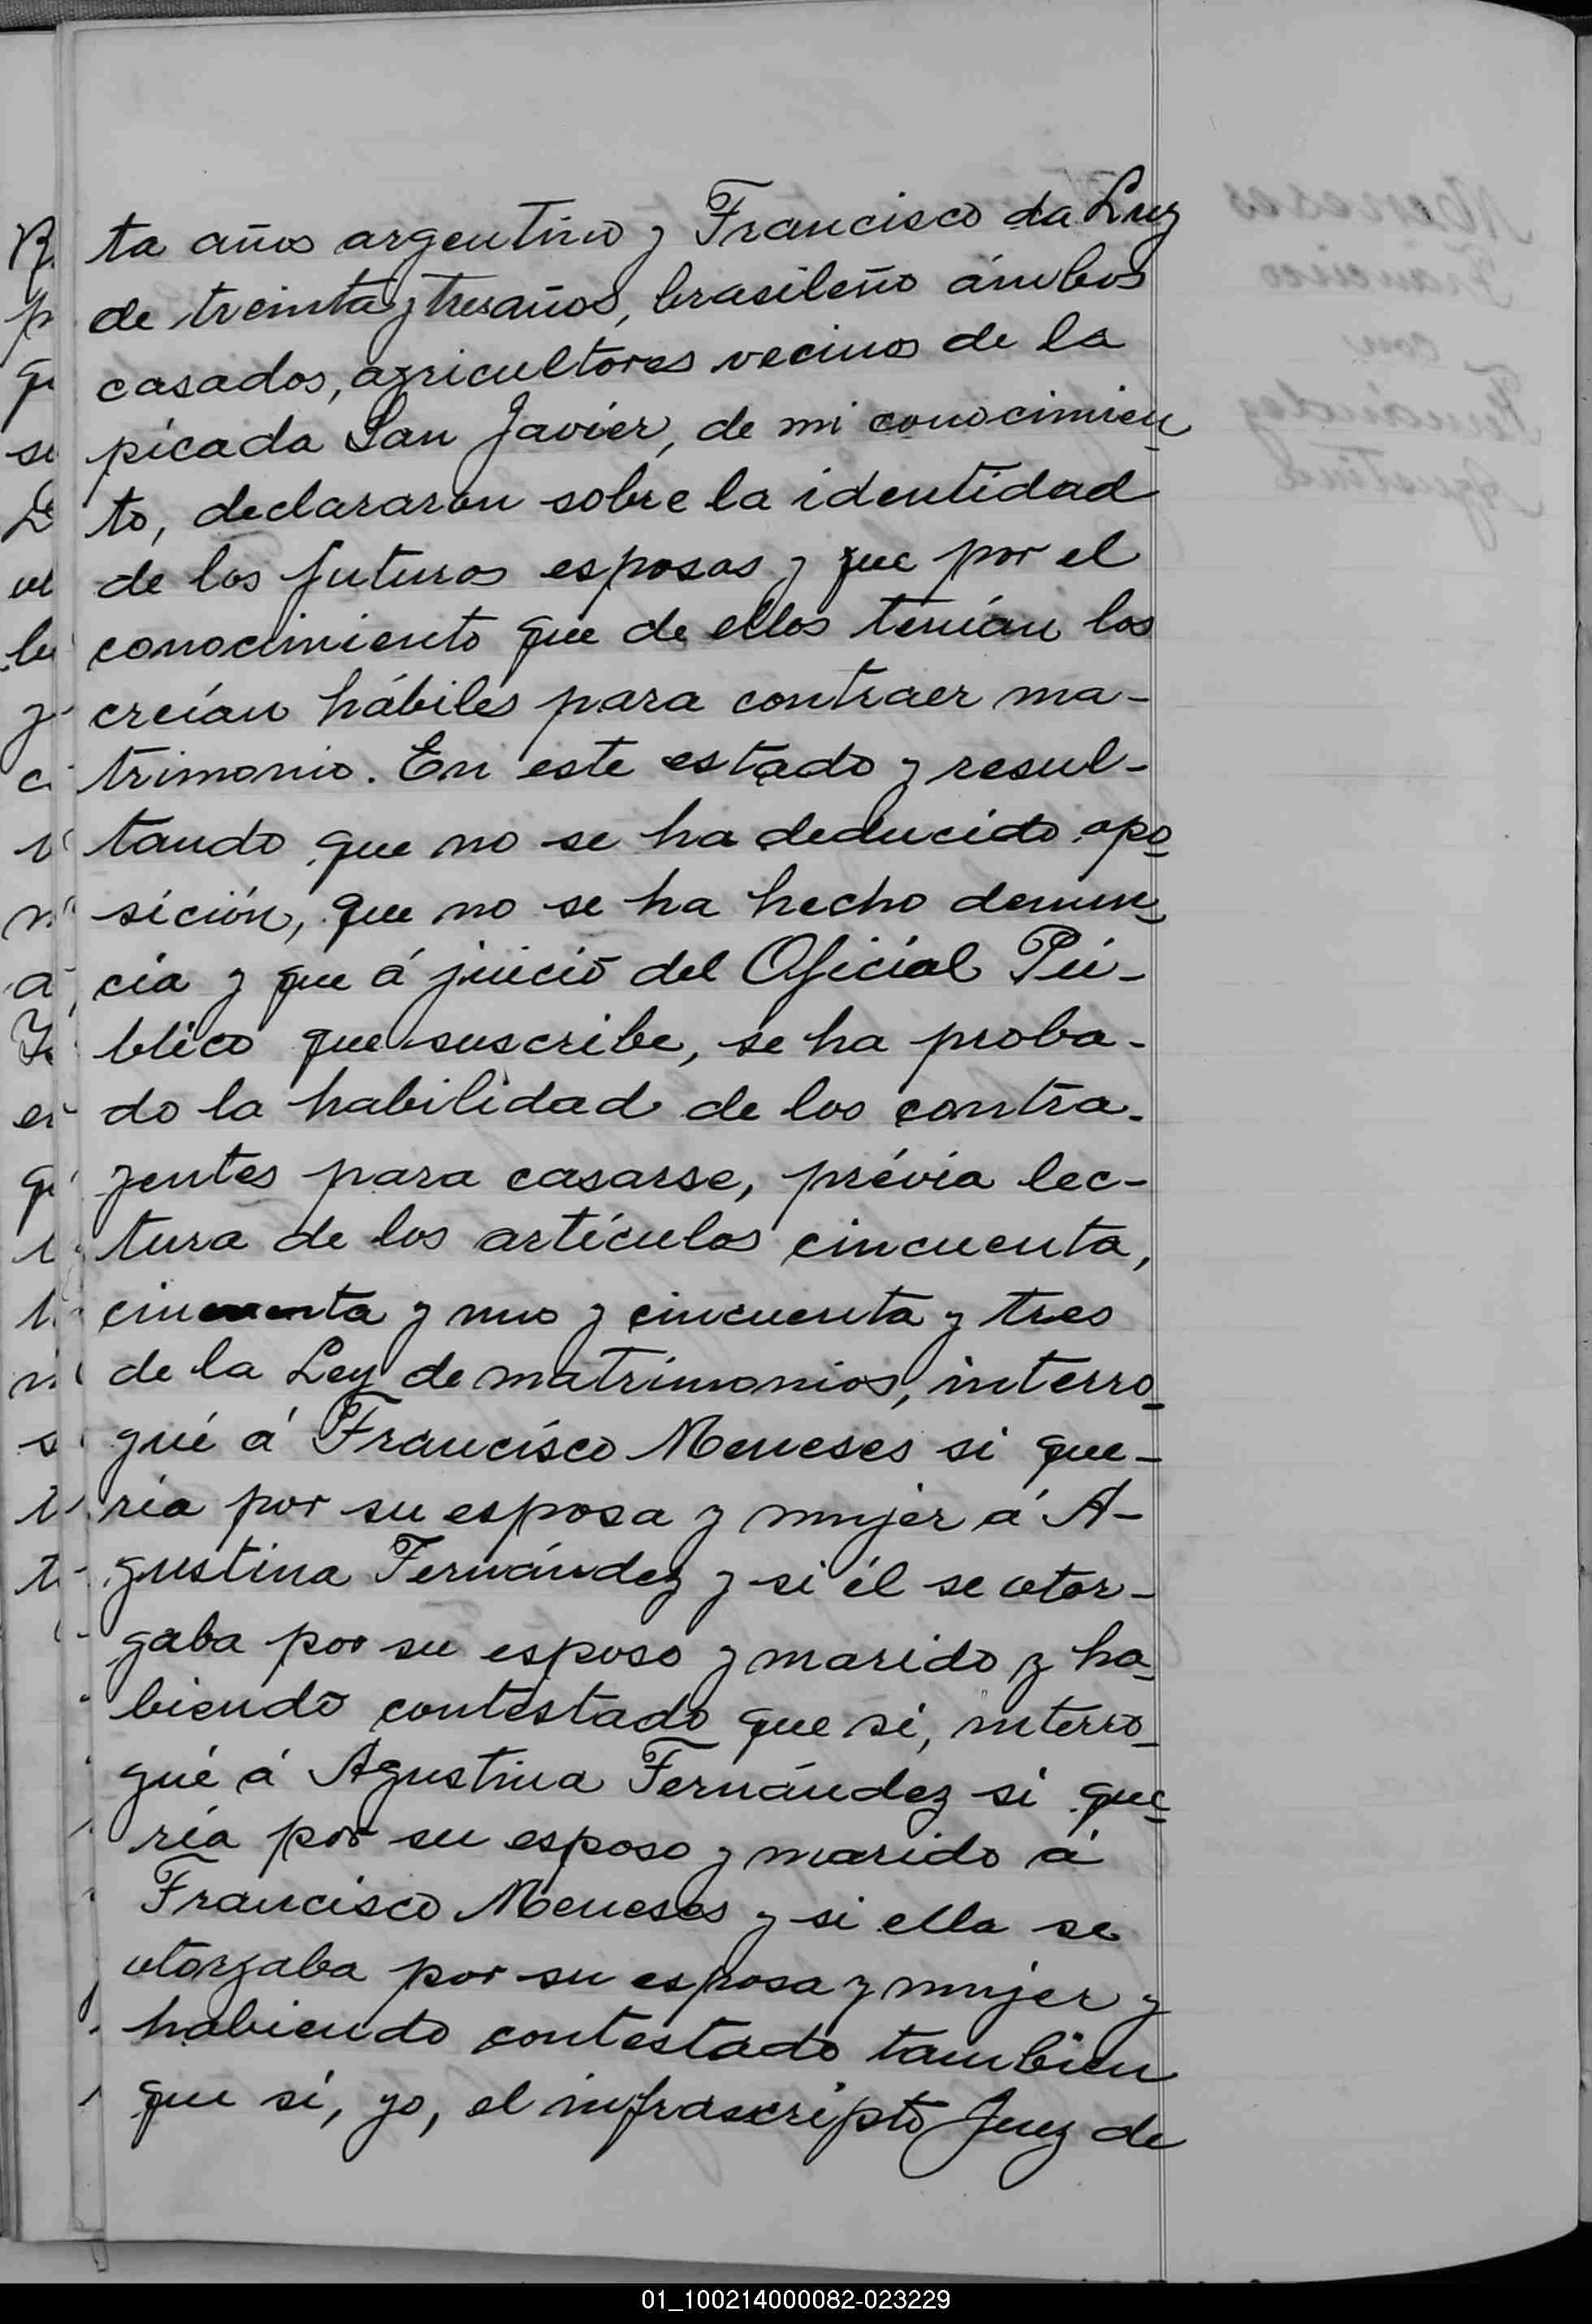 ta años argentino y Francisco da Luz
de treinta y tres años, brasileño ámbos
casados, agricultores vecinos de la
picada San Javier, de mi conocimien_
to, declararon sobre la identidad
de los futuros esposos y que por el
conocimiento que de ellos tenían los
creían hábiles para contraer ma-
trimonio. En este estado y resul-
tando que no se ha deducido opo_
sición, que no se ha hecho denun_
cia y que á juicio del Oficial Pú-
blico que suscribe, se ha proba-
do la habilidad de los contra-
yentes para casarse, prévia lec-
tura de los artículos cincuenta,
cincuenta y uno y cincuenta y tres
de la Ley de matrimonios, interro_
gué á Francisco Meneses si que-
ría por su esposa y mujer á A-
gustina Fernández y si él se otor-
gaba por su esposo y marido y ha_
biendo contestado que sí, interro_
gué á Agustina Fernández si que_
ría por su esposo y marido á
Francisco Meneses y si ella se
otorgaba por su esposa y mujer y
habiendo contestado tambien
que sí, yo, el infrascripto Juez de
01_100214000082-023229